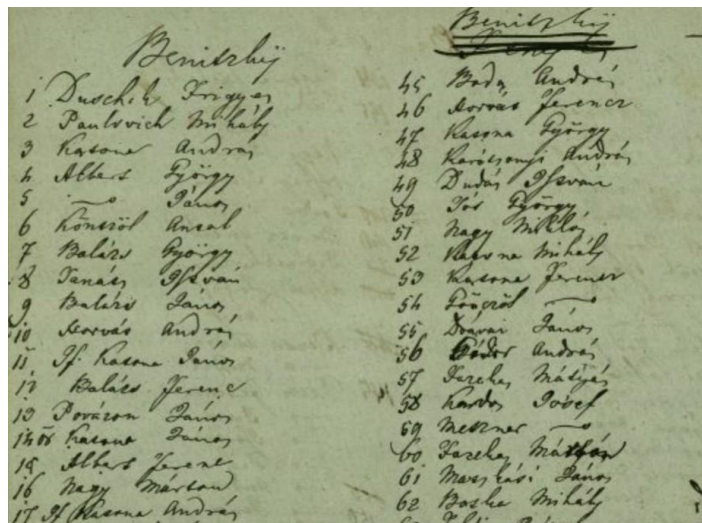 Benitzky
1 Duschek Frigyes
2 Paulovich Mihály
3 Katona András
4 Albert György
5 —〃— János
6 Antal
7 Balázs György
8 Tanács Istvan
9 Balázs János
10 Horvás András
11 If. Katona János
12 Balázs Ferenc
13 Povázon János
14 ős Katona János
15 Albert Ferenc
16 Nagy Márton
17 If Katona András
Benitzky
45 Boda András
46 Horvás Ferencz
47 Katona György
48 Karácsonyi András
49 Dudás István
50 Tós György
51 Nagy Miklós
52 Katona Mihály
53 Katona Ferencz
54 —〃—
55 Drávai János
56 András
57 Fazekas Mátyás
58 Kardos József
59 Meszner —〃—
60 Fazekas
61 János
62 Boska Mihály